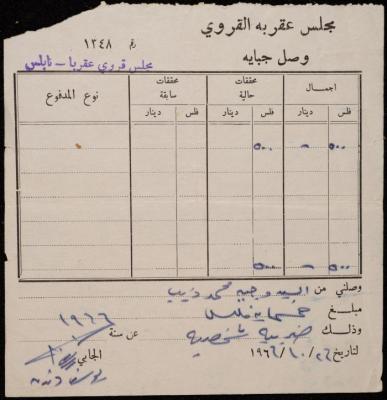 مجلس عقربه القروي
رقم ١٣٤٨
وصل جبايه
مجلس قروي عقربا - نابلس
اجمال
محققات حالية
محققات سابقة
نوع المدفوع
فلس دينار فلس دينار فلس دينار
٥٠٠ - ٥٠٠
٥٠٠ - ٥٠٠
وصلني من السيد وجيه محمد ذيب
مبلغ خمسماية فلس
وذلك ضريبة شخصية عن سنة ١٩٦٦
لتاريخ ٢٦/١٠/١٩٦٦ الجابي